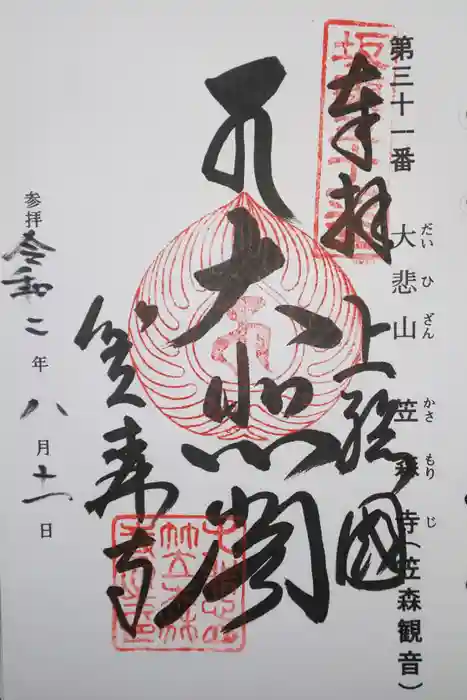 第三十一番 大悲山 笠森寺(笠森観音)
だい ひ ざん かさ もり じ
奉拝
上総国
大悲閣
笠森寺
参拝 令和二年八月十一日